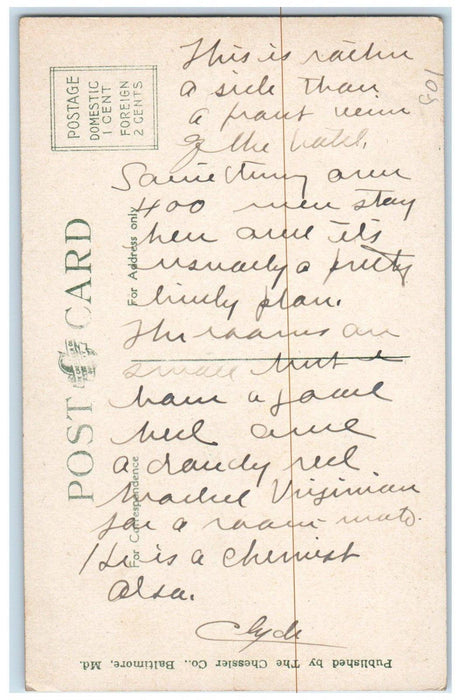 This is rather
a side than
a front view
of the hotel.
Sometimes over
400 men stay
here and it's
usually a pretty
lively place.
The rooms are
small but I
have a good
bed and
a dandy red
headed Virginian
for a room mate.
He is a chemist
also.
Clyde
POSTAGE
DOMESTIC
1 CENT
FOREIGN
2 CENTS
POST CARD
For Address only
For Correspondence
Published by The Chessler Co., Baltimore, Md.
108